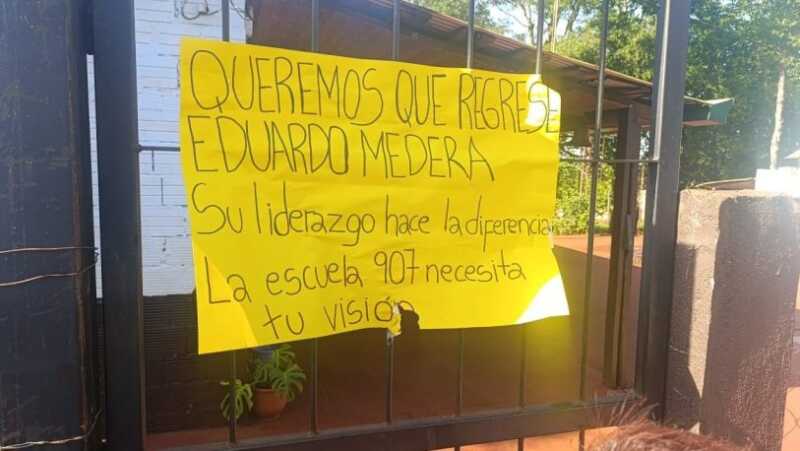 QUEREMOS QUE REGRESE
EDUARDO MEDERA
Su liderazgo hace la diferencia
La escuela 907 necesita
tu visión